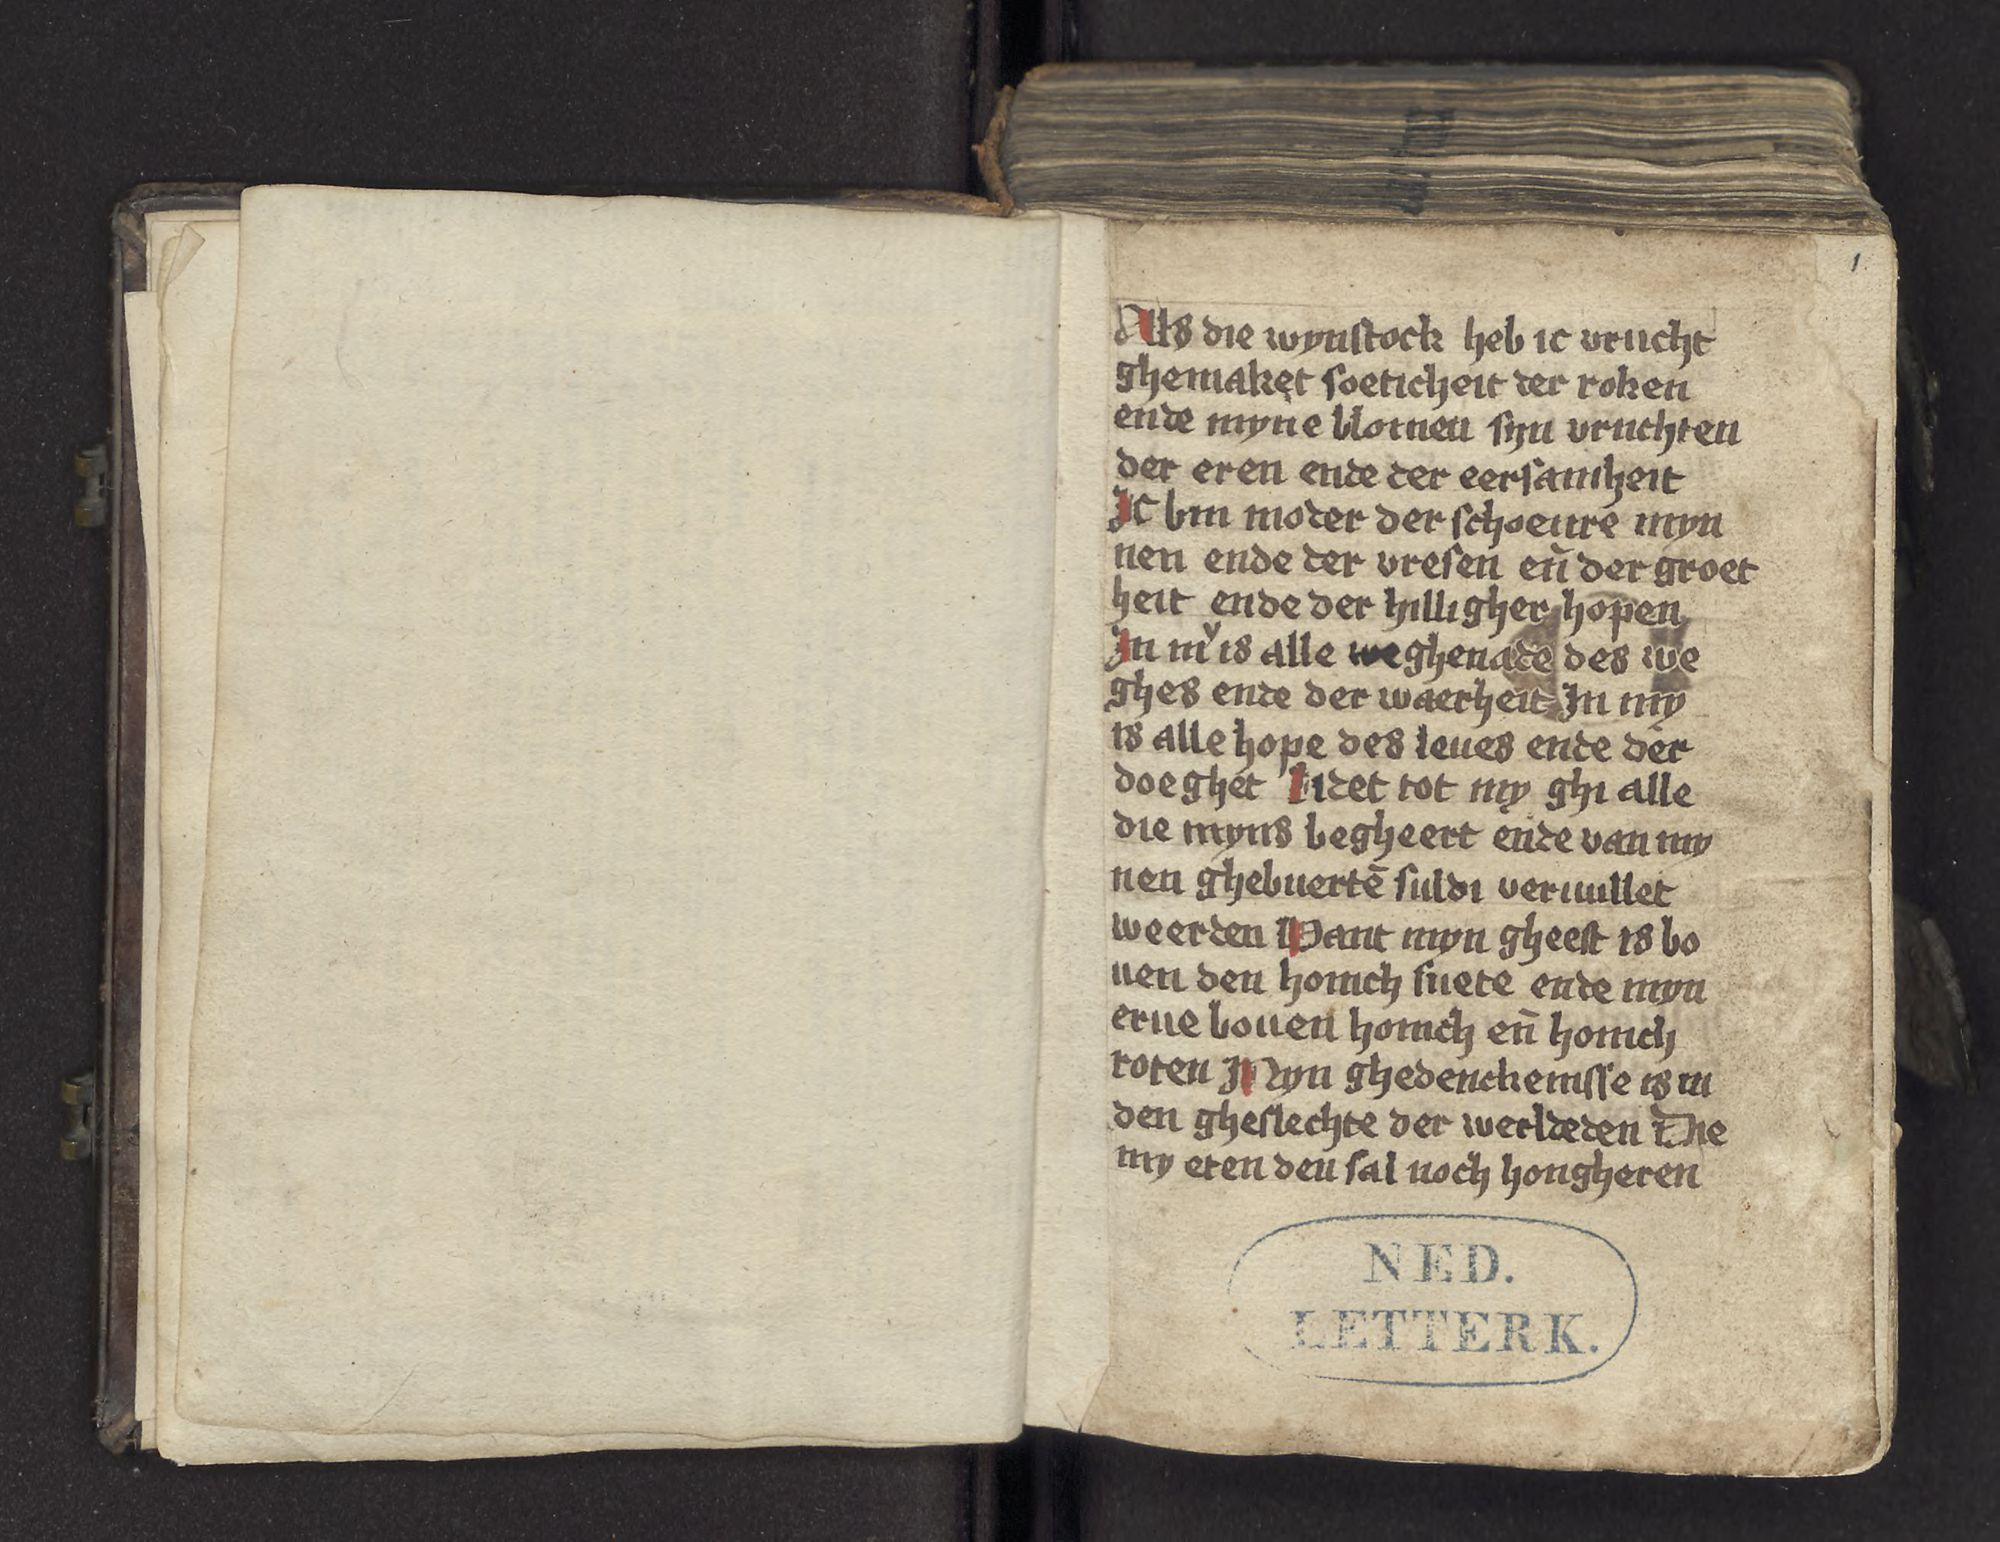 1.
Als die wynstock heb ic vrucht
ghemaket soeticheit der roken
ende myne blomen syn vruchten
der eren ende der eersamheit
Ic bin moder der schoenre myn
nen ende der vresen eñ der groet
heit ende der hilligher hopen
In mẏ is alle we ghenade des we
ghes ende der waerheit In my
is alle hope des leues ende der
doeghet lidet tot my ghi alle
die myns begheert ende van my
nen ghebuertē suldi veruullet
weerden Want myn gheest is bo
uen den honich suete ende myn
erue bouen honich eñ honich
roten Myn ghedenckenisse is in
den gheslechte der werldeden Die
my eten den sal noch hongheren
NED.
LETTERK.